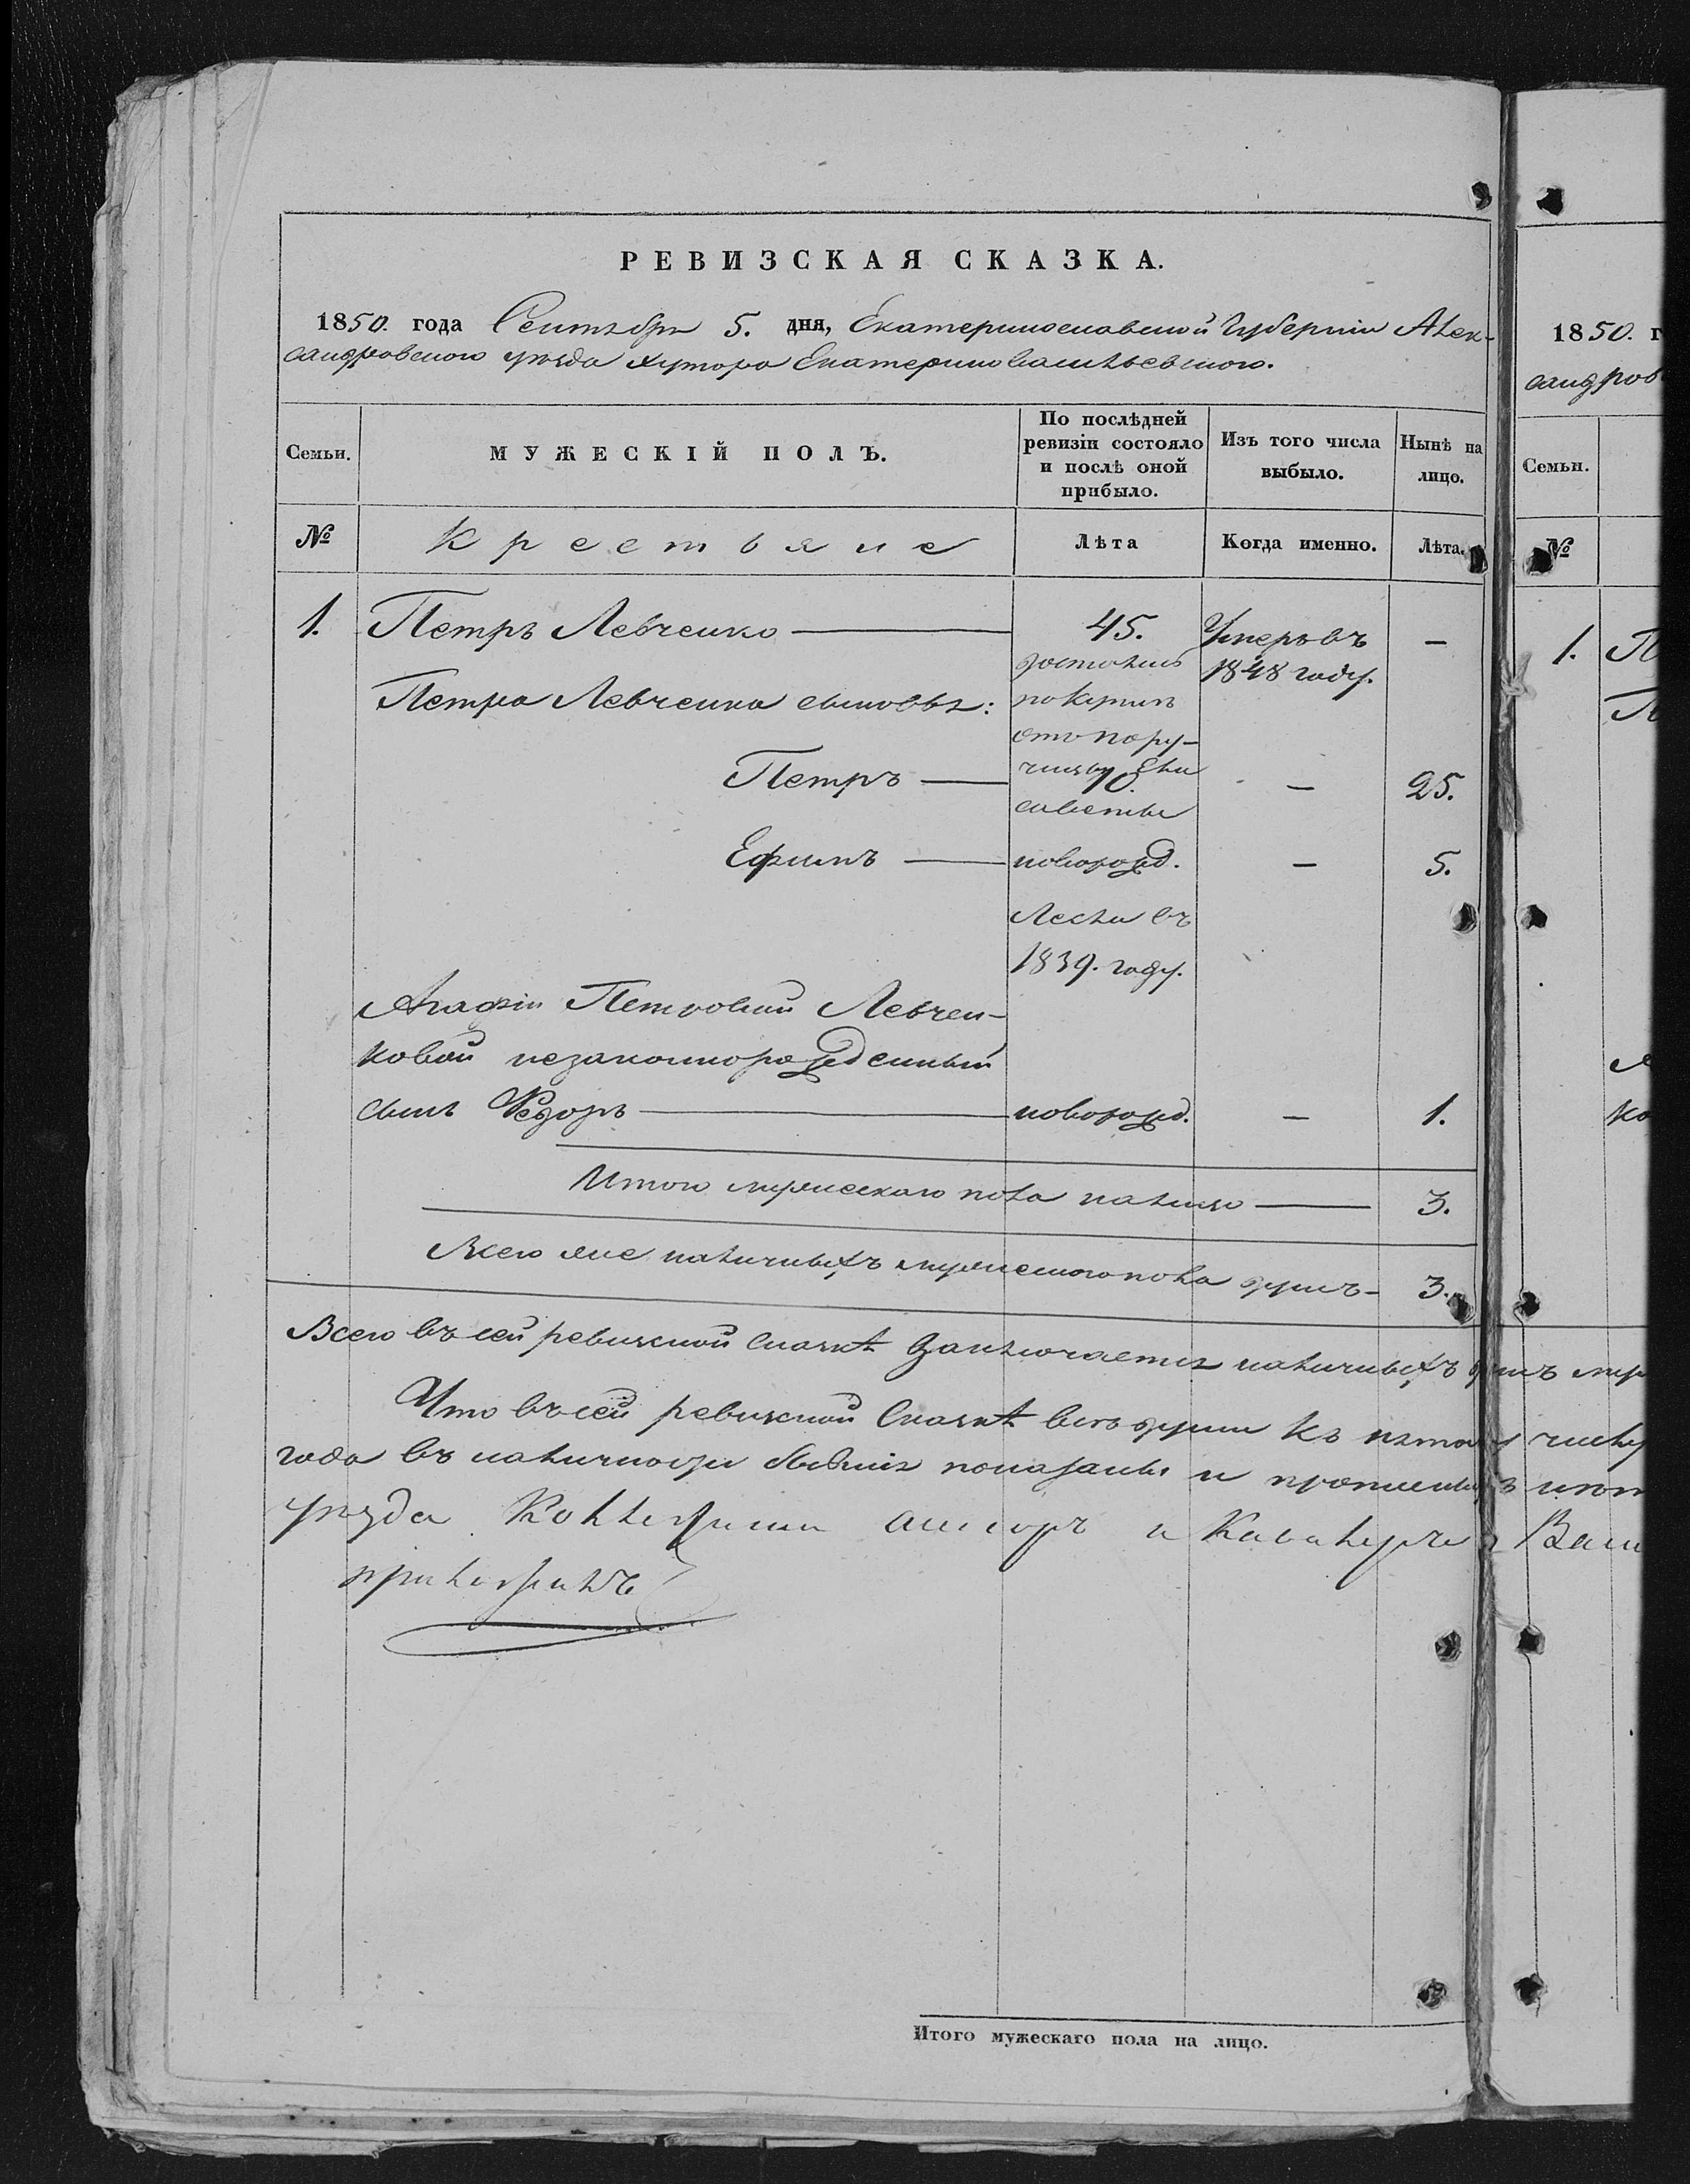 РЕВИЗСКАЯ СКАЗКА.
1850. года Сентября 5. дня, Екатеринославской Губернiи Алек-
сандровского уѣзда хутора Екатерино Васильевского.
Семьи.
МУЖЕСКIЙ ПОЛЪ.
По послѣдней
ревизiи состояло
и послѣ оной
прибыло.
Изъ того числа
выбыло.
Нынѣ на
лицо.
№
Крестьяне
Лѣта
Когда именно.
Лѣта.
1.
Петръ Левченко
45.
Умеръ въ
1848 году.
—
достались
Петра Левченка сыновья:
по купчей
отъ пору-
Петръ
10.
—
25.
Ефимъ
новорожд.
—
5.
въ
1839. году.
Агафiи Петровой Левчен-
ковой незаконнорожденный
сынъ Федоръ
новорожд.
—
1.
Итого мужескаго пола налицо
3.
Всего же наличныхъ мужеского пола душъ-
3.
Всего въ сей ревизской сказкѣ заключается наличныхъ душъ
Что въ сей ревизской сказкѣ всѣ души къ числу
года въ наличности бывшiя показаны и
уѣзда и Кавалеръ
1850. г
сандров
Семьи.
№
1.
П
ко
Итого мужескаго пола на лицо.